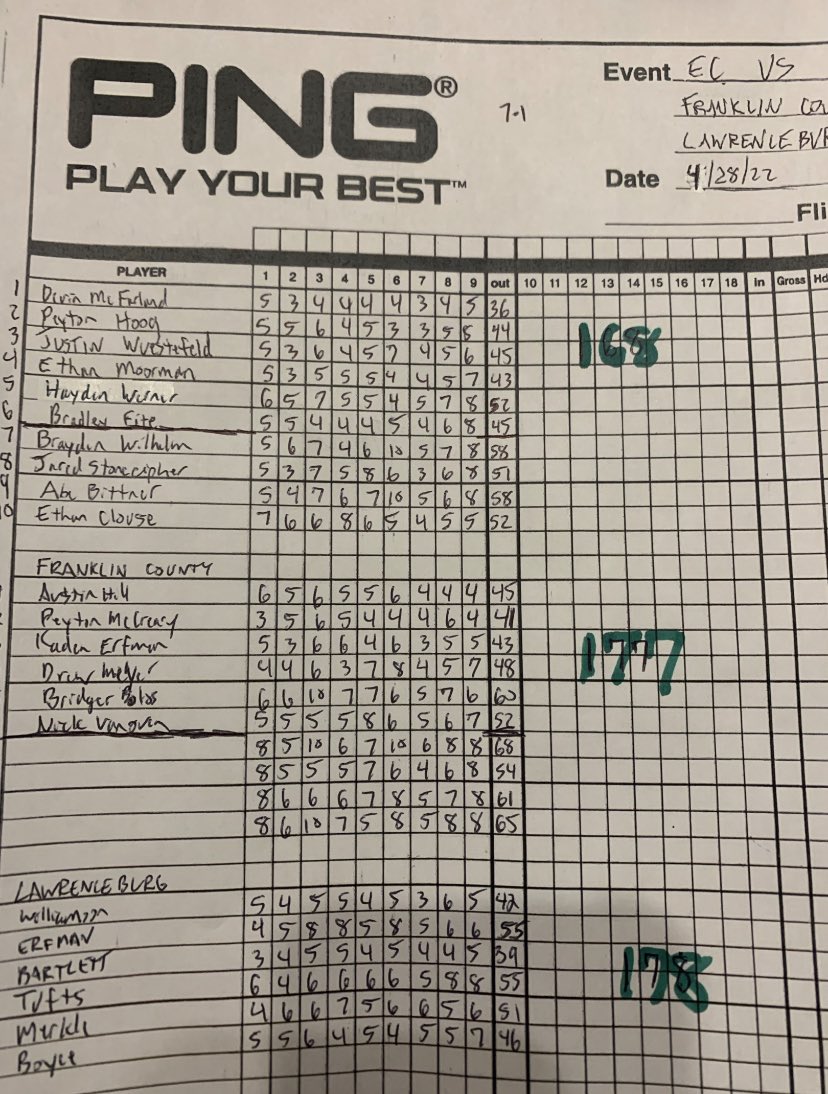 PING®
PLAY YOUR BEST™
7-1
Event EC VS
FRANKLIN
LAWRENCEBUR
Date 4/28/22
Fli
PLAYER 1 2 3 4 5 6 7 8 9 out 10 11 12 13 14 15 16 17 18 In Gross Hd
1 Devin McFarland 5 3 4 4 4 4 3 4 5 36
2 Peyton Hoog 5 5 6 4 5 3 3 5 8 44
168
3 JUSTIN Wuestefeld 5 3 6 4 5 7 4 5 6 45
4 Ethan Moorman 5 3 5 5 5 4 4 5 7 43
5 Hayden Werner 6 5 7 5 5 4 5 7 8 52
6 Bradley Fite 5 5 4 4 4 5 4 6 8 45
7 Brayden Wilhelm 5 6 7 4 6 10 5 7 8 58
8 Jared Stonecipher 5 3 7 5 8 6 3 6 8 51
9 Abe Bittner 5 4 7 6 7 10 5 6 8 58
10 Ethan Clouse 7 6 6 8 6 5 4 5 5 52
FRANKLIN COUNTY
Austin Hill 6 5 6 5 5 6 4 4 4 45
Peyton McCreary 3 5 6 5 4 4 4 6 4 41
Kaden Erfman 5 3 6 6 4 6 3 5 5 43
177
Drew Meyer 4 4 6 3 7 8 4 5 7 48
Bridger 6 6 10 7 7 6 5 7 6 60
Nick Vanoven 5 5 5 5 8 6 5 6 7 52
8 5 10 6 7 10 6 8 8 68
8 5 5 5 7 6 4 6 8 54
8 6 6 6 7 8 5 7 8 61
8 6 10 7 5 8 5 8 8 65
LAWRENCEBURG
Williamson 5 4 5 5 4 5 3 6 5 42
ERFMAN 4 5 8 8 5 8 5 6 6 55
BARTLETT 3 4 5 5 4 5 4 4 5 39
178
Tufts 6 4 6 6 6 6 5 8 8 55
Merkle 4 6 6 7 5 6 6 5 6 51
Boyce 5 5 6 4 5 4 5 5 7 46